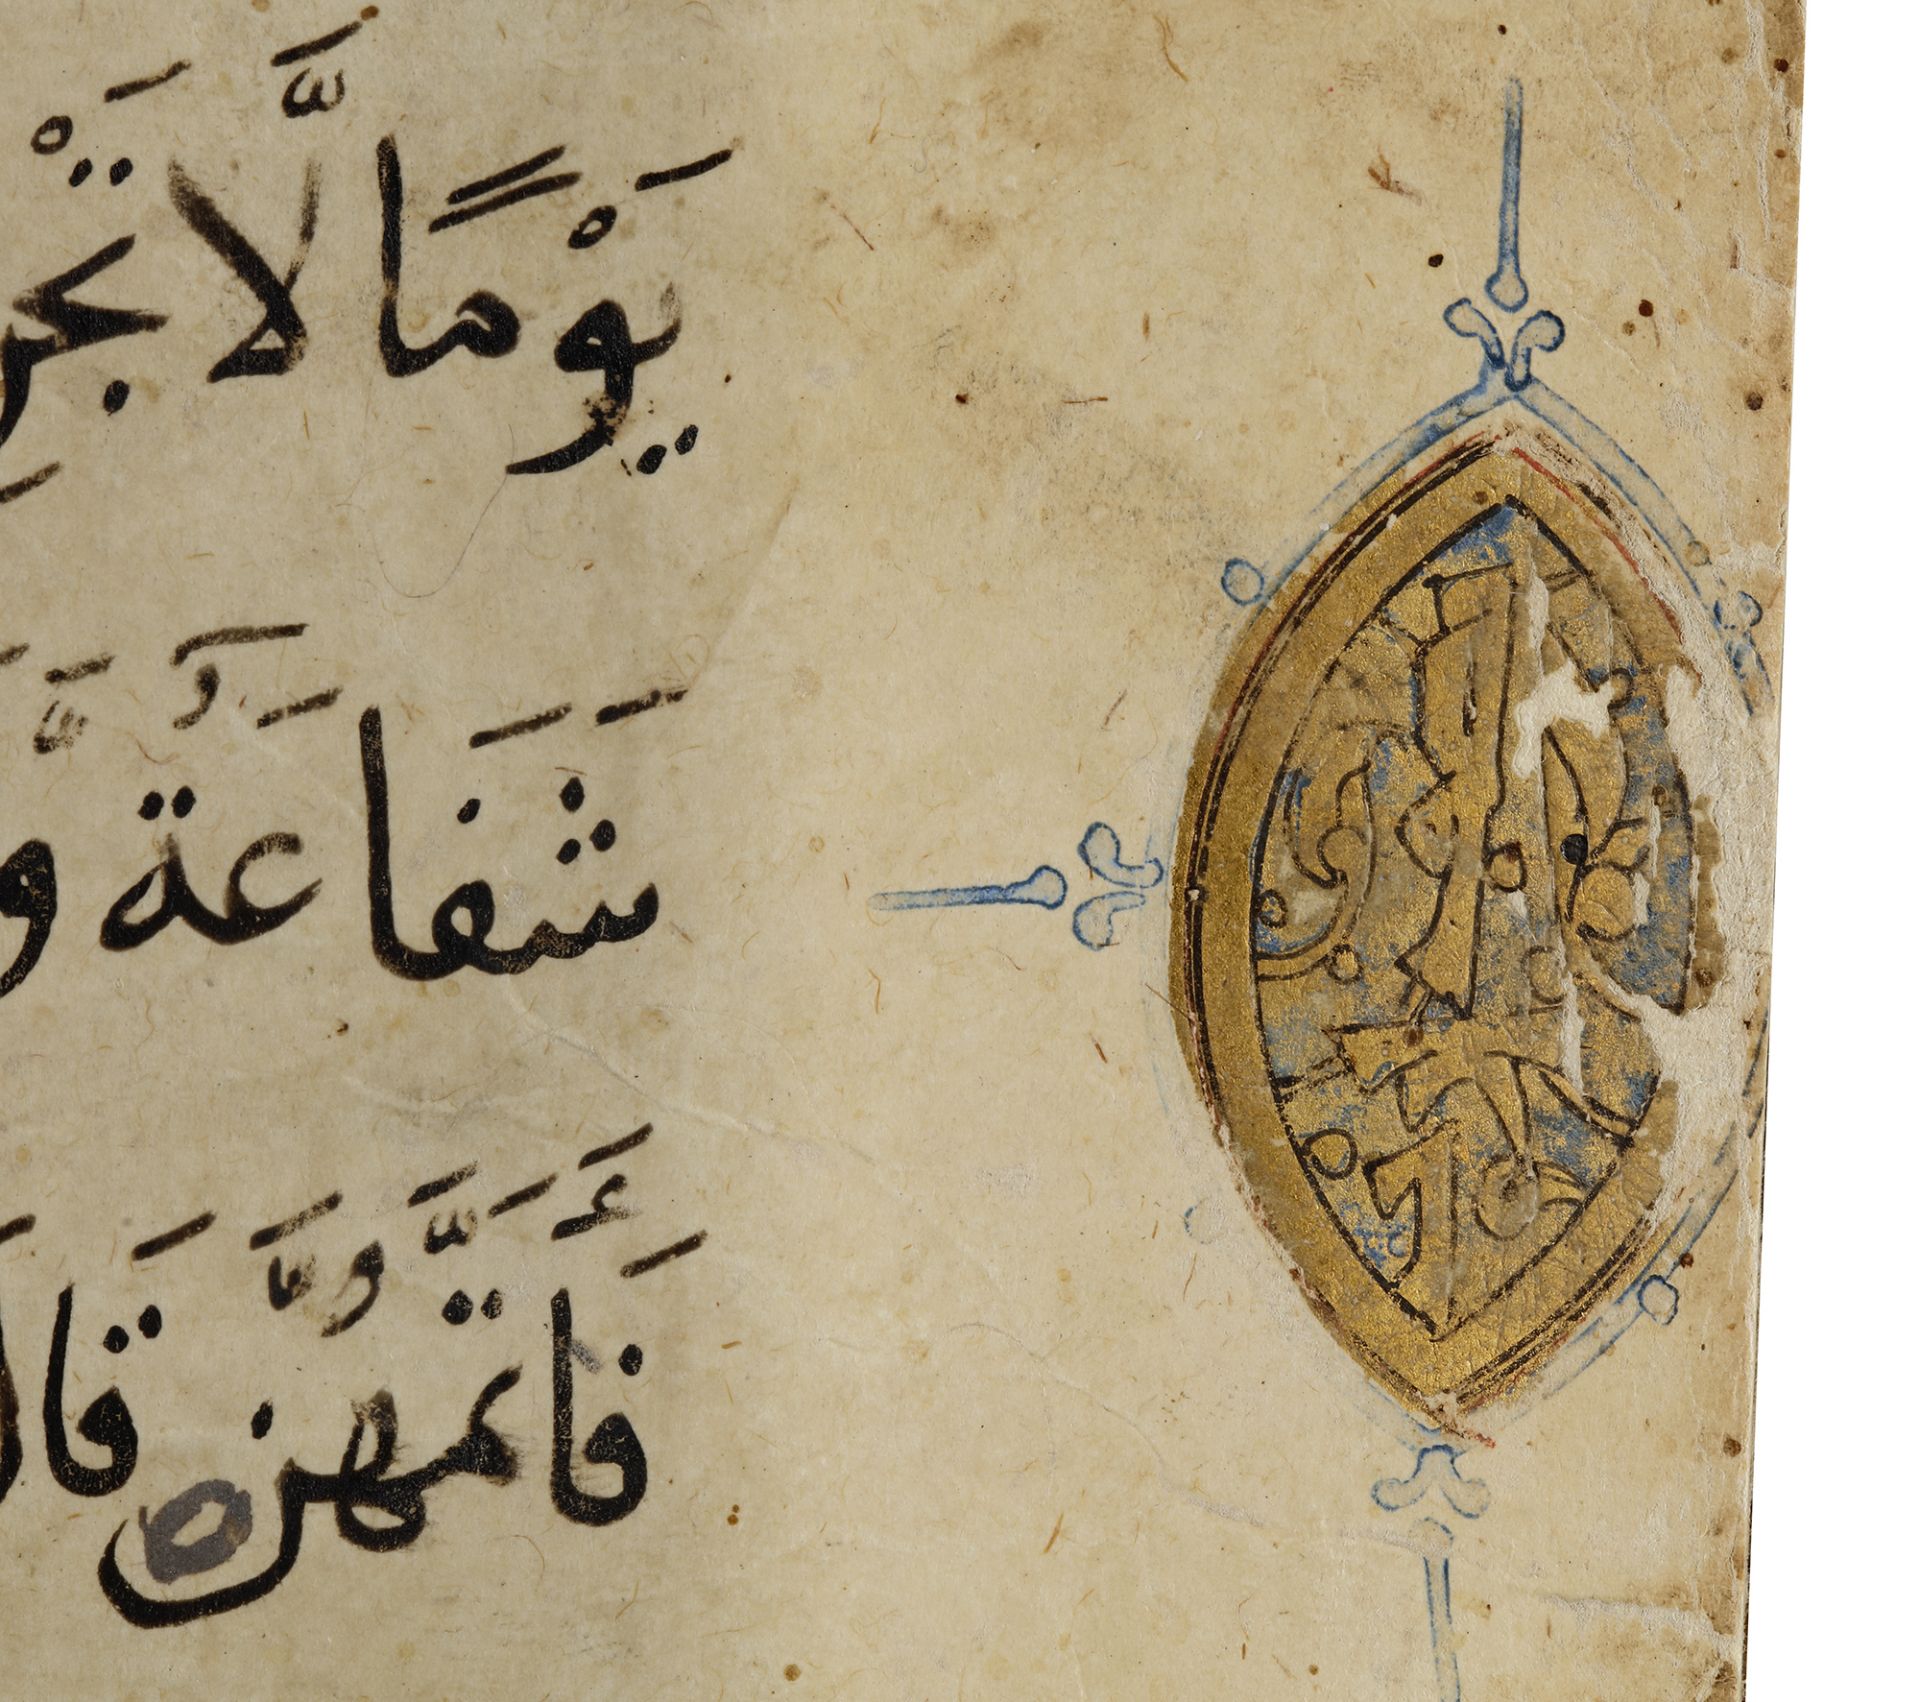 يَوْمًا لَّا تَجْزِ
شَفَاعَةٌ وَ
فَأَتَمَّهُنَّ قَالَ